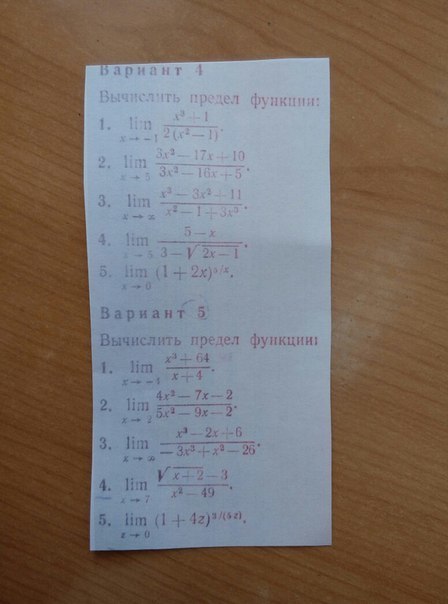 Вариант 4
Вычислить предел функции:
1. lim x→−1 (x³+1)/(2(x²−1)).
2. lim x→5 (3x²−17x+10)/(3x²−16x+5).
3. lim x→∞ (x³−3x²+11)/(x²−1+3x³).
4. lim x→5 (5−x)/(3−√(2x−1)).
5. lim x→0 (1+2x)^(5/x).
Вариант 5
Вычислить предел функции:
1. lim (x³+64)/(x+4).
2. lim x→2 (4x²−7x−2)/(5x²−9x−2).
3. lim x→∞ (x³−2x+6)/(−3x³+x²−26).
4. lim x→7 (√(x+2)−3)/(x²−49).
5. lim z→0 (1+4z)^(3/(5z)).